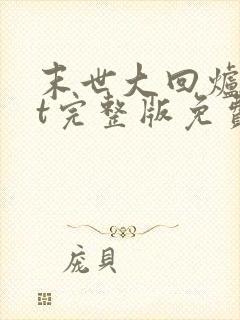 末世大回爐
t完整版免費
庞貝